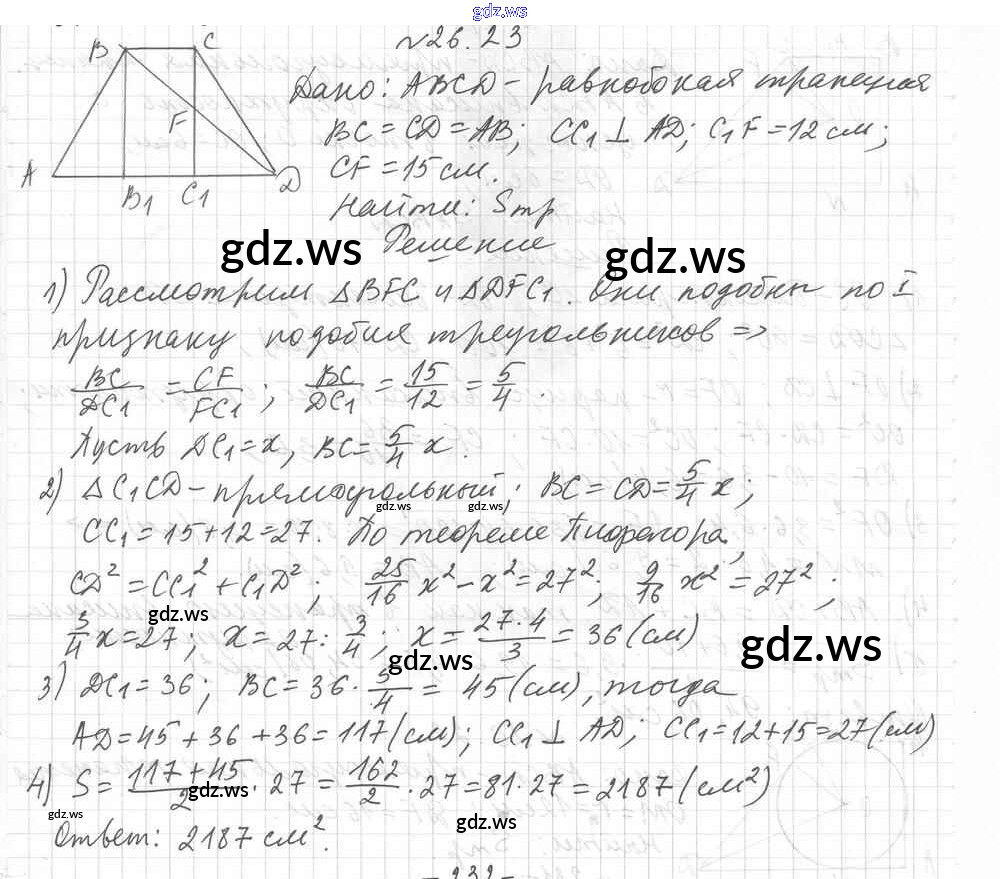 gdz.ws
№26.23
B C F A B1 C1 D
Дано: ABCD - равнобокая трапеция
BC = CD = AB; CC1 ⊥ AD; C1F = 12 см;
CF = 15 см.
Найти: Sтр
Решение
gdz.ws gdz.ws
1) Рассмотрим △BFC и △DFC1. Они подобны по I
признаку подобия треугольников =>
BC/DC1 = CF/FC1; BC/DC1 = 15/12 = 5/4.
Пусть DC1 = x, BC = 5/4 x.
2) △C1CD - прямоугольный; BC = CD = 5/4 x;
gdz.ws gdz.ws
CC1 = 15 + 12 = 27. По теореме Пифагора,
CD² = CC1² + C1D²; 25/16 x² - x² = 27²; 9/16 x² = 27²;
gdz.ws
3/4 x = 27; x = 27 : 3/4; x = 27·4/3 = 36 (см)
gdz.ws gdz.ws
3) DC1 = 36; BC = 36 · 5/4 = 45 (см), тогда
AD = 45 + 36 + 36 = 117 (см); CC1 ⊥ AD; CC1 = 12 + 15 = 27 (см)
4) S = 117 + 45/2 · 27 = 162/2 · 27 = 81 · 27 = 2187 (см²)
gdz.ws gdz.ws gdz.ws
Ответ: 2187 см².
- 232 -